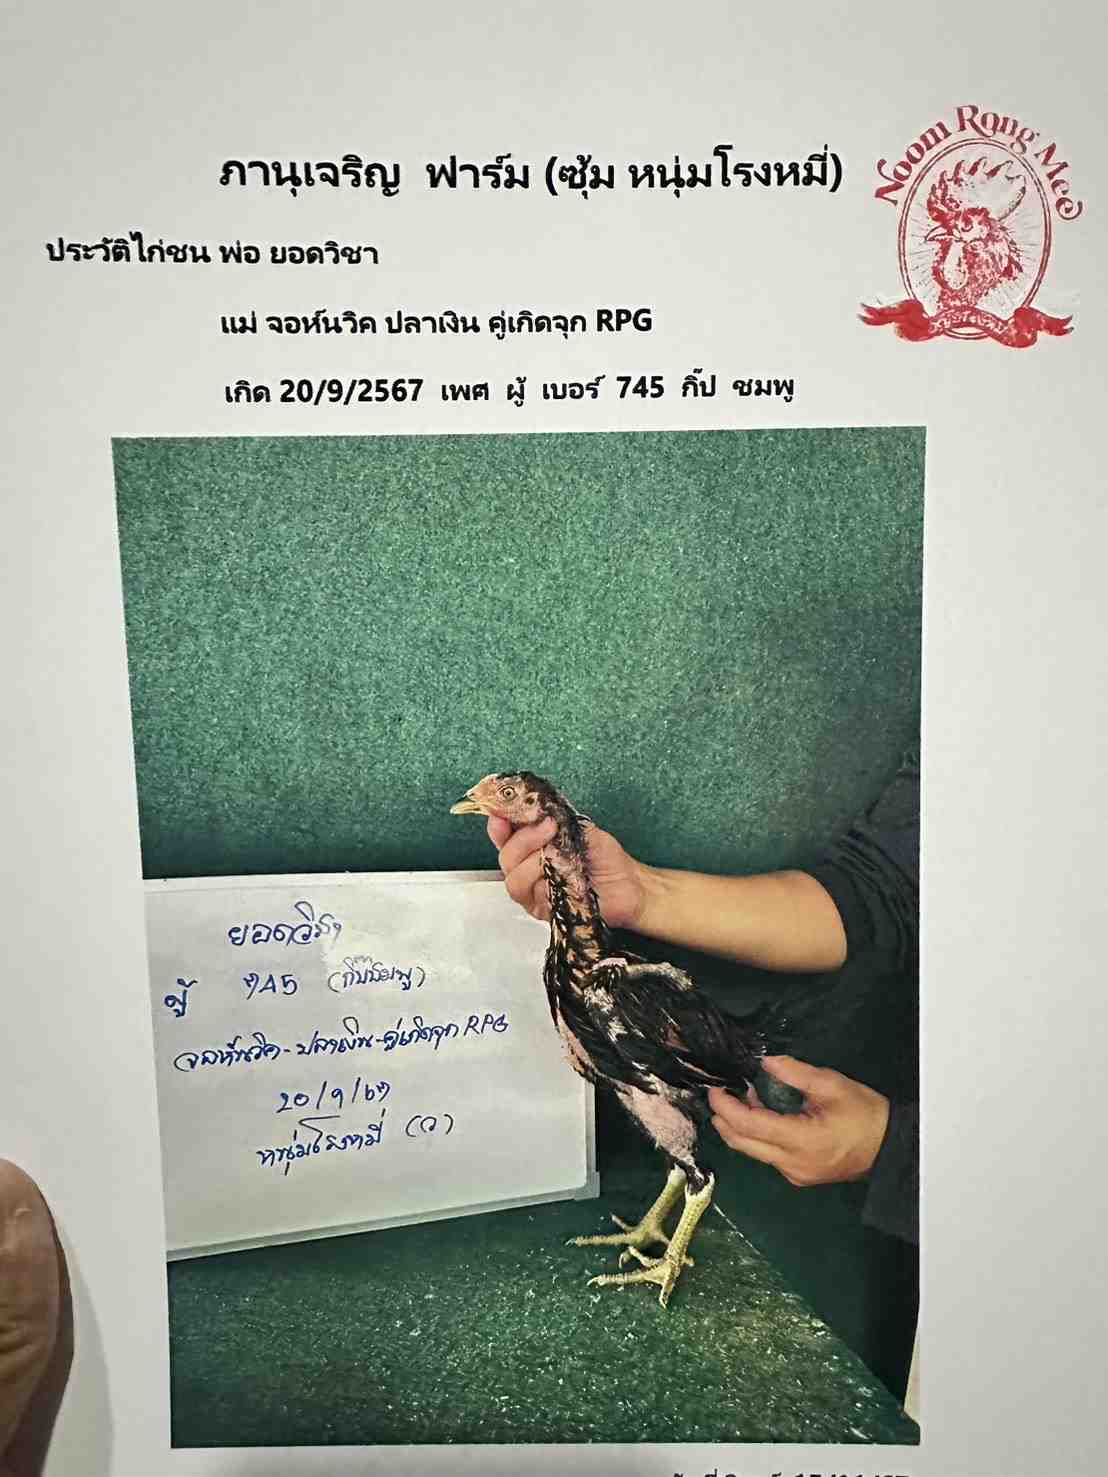 Noom Rong Mee
ภานุเจริญ ฟาร์ม (ซุ้ม หนุ่มโรงหมี่)
ประวัติไก่ชน พ่อ ยอดวิชา
แม่ จอห์นวิค ปลาเงิน คู่เกิดจุก RPG
เกิด 20/9/2567 เพศ ผู้ เบอร์ 745 กิ๊ป ชมพู
ยอดวิชา
ผู้ 745 (กิ๊บชมพู)
จอห์นวิค-ปลาเงิน-คู่เกิดจุก RPG
20/9/67
หนุ่มโรงหมี่ (ว)